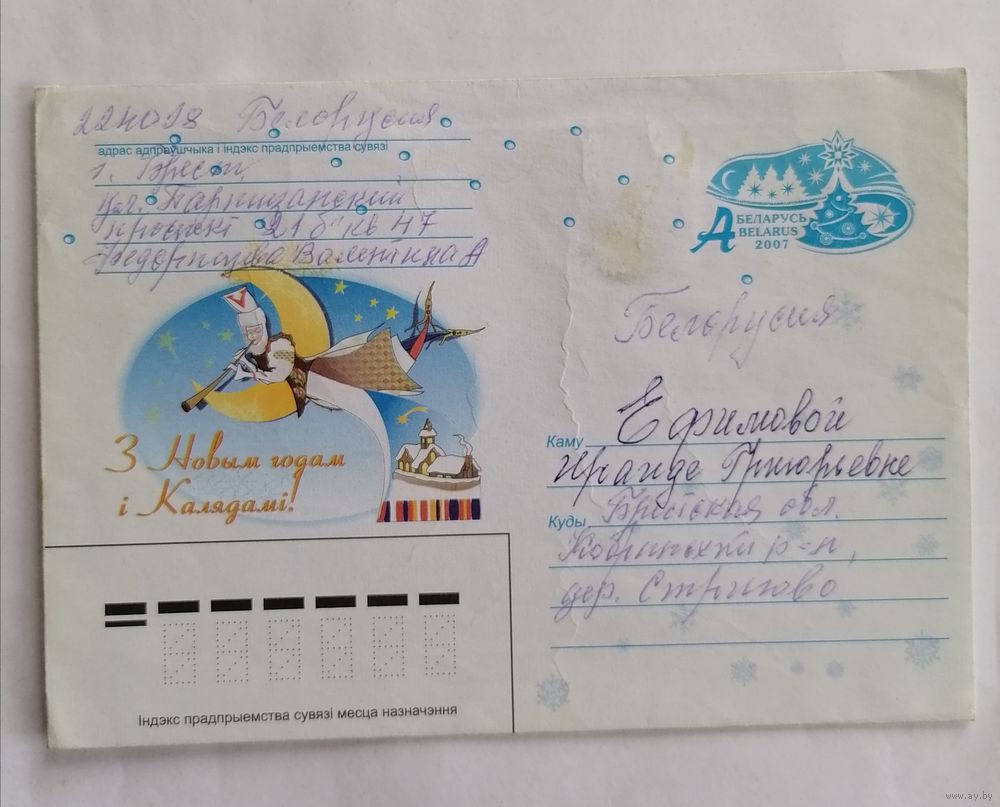 224028 Белоруссия
адрас адпраўшчыка і індэкс прадпрыемства сувязі
г. Брест,
ул. Партизанский
проспект 21б кв 47
Валентина А
А БЕЛАРУСЬ
BELARUS
2007
Белоруссия
З Новым годам
і Калядамі!
Каму Ефимовой
Ираиде Григорьевне
Куды Брестская обл.
Кобринский р-н,
дер. Стригово
Індэкс прадпрыемства сувязі месца назначэння
www.ay.by